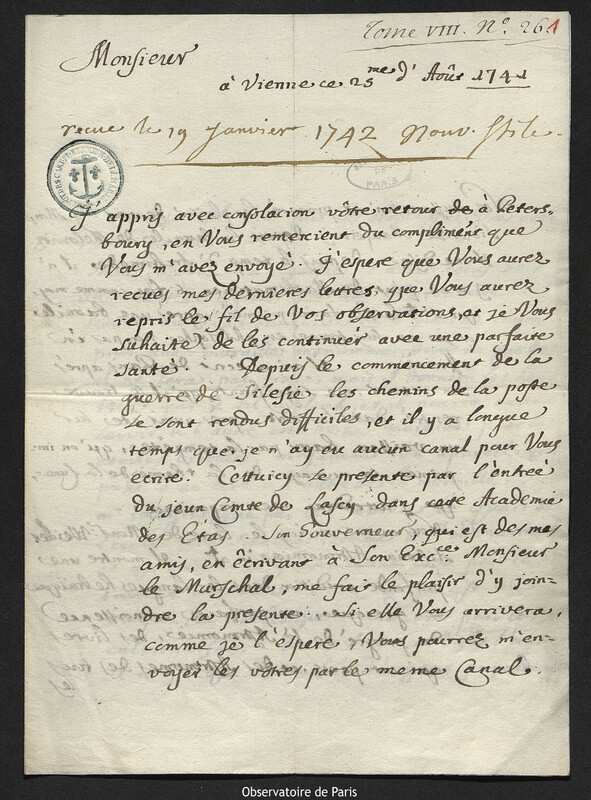 Tome VIII. N.º 261
Monsieur
à Vienne ce 25me d' Aoûs 1741
recue le 19 Janvier 1742 Nouv. Stile.
PARIS
J appris avec consolacion vôtre retour de à Peters-
bourg, en Vous remercient du compliment que
Vous m'avez envoyé. J'espere que Vous aurez
recues mes dernieres lettres, que Vous aurez
repris le fil de Vos observations, et je Vous
suhaite de les continuer avec une parfaite
santé. Depuis le commencement de la
guerre de Silesie les chemins de la poste
se sont rendus difficiles, et il y a longue
temps que je n'ay eu aucun canal pour Vous
ecrire. Cettuicy se presente par l'entrée
du jeun Comte de Lascy dans cette Academie
des Etas. Son Gouverneur, qui est des mes
amis, en êcrivant à Son Excce. Monsieur
le Marschal, me fait le plaisir d'y join-
dre la presente. Si elle Vous arrivera,
comme je l'espere, Vous pourrez m'en-
voyer les vôtres par le meme Canal.
Observatoire de Paris